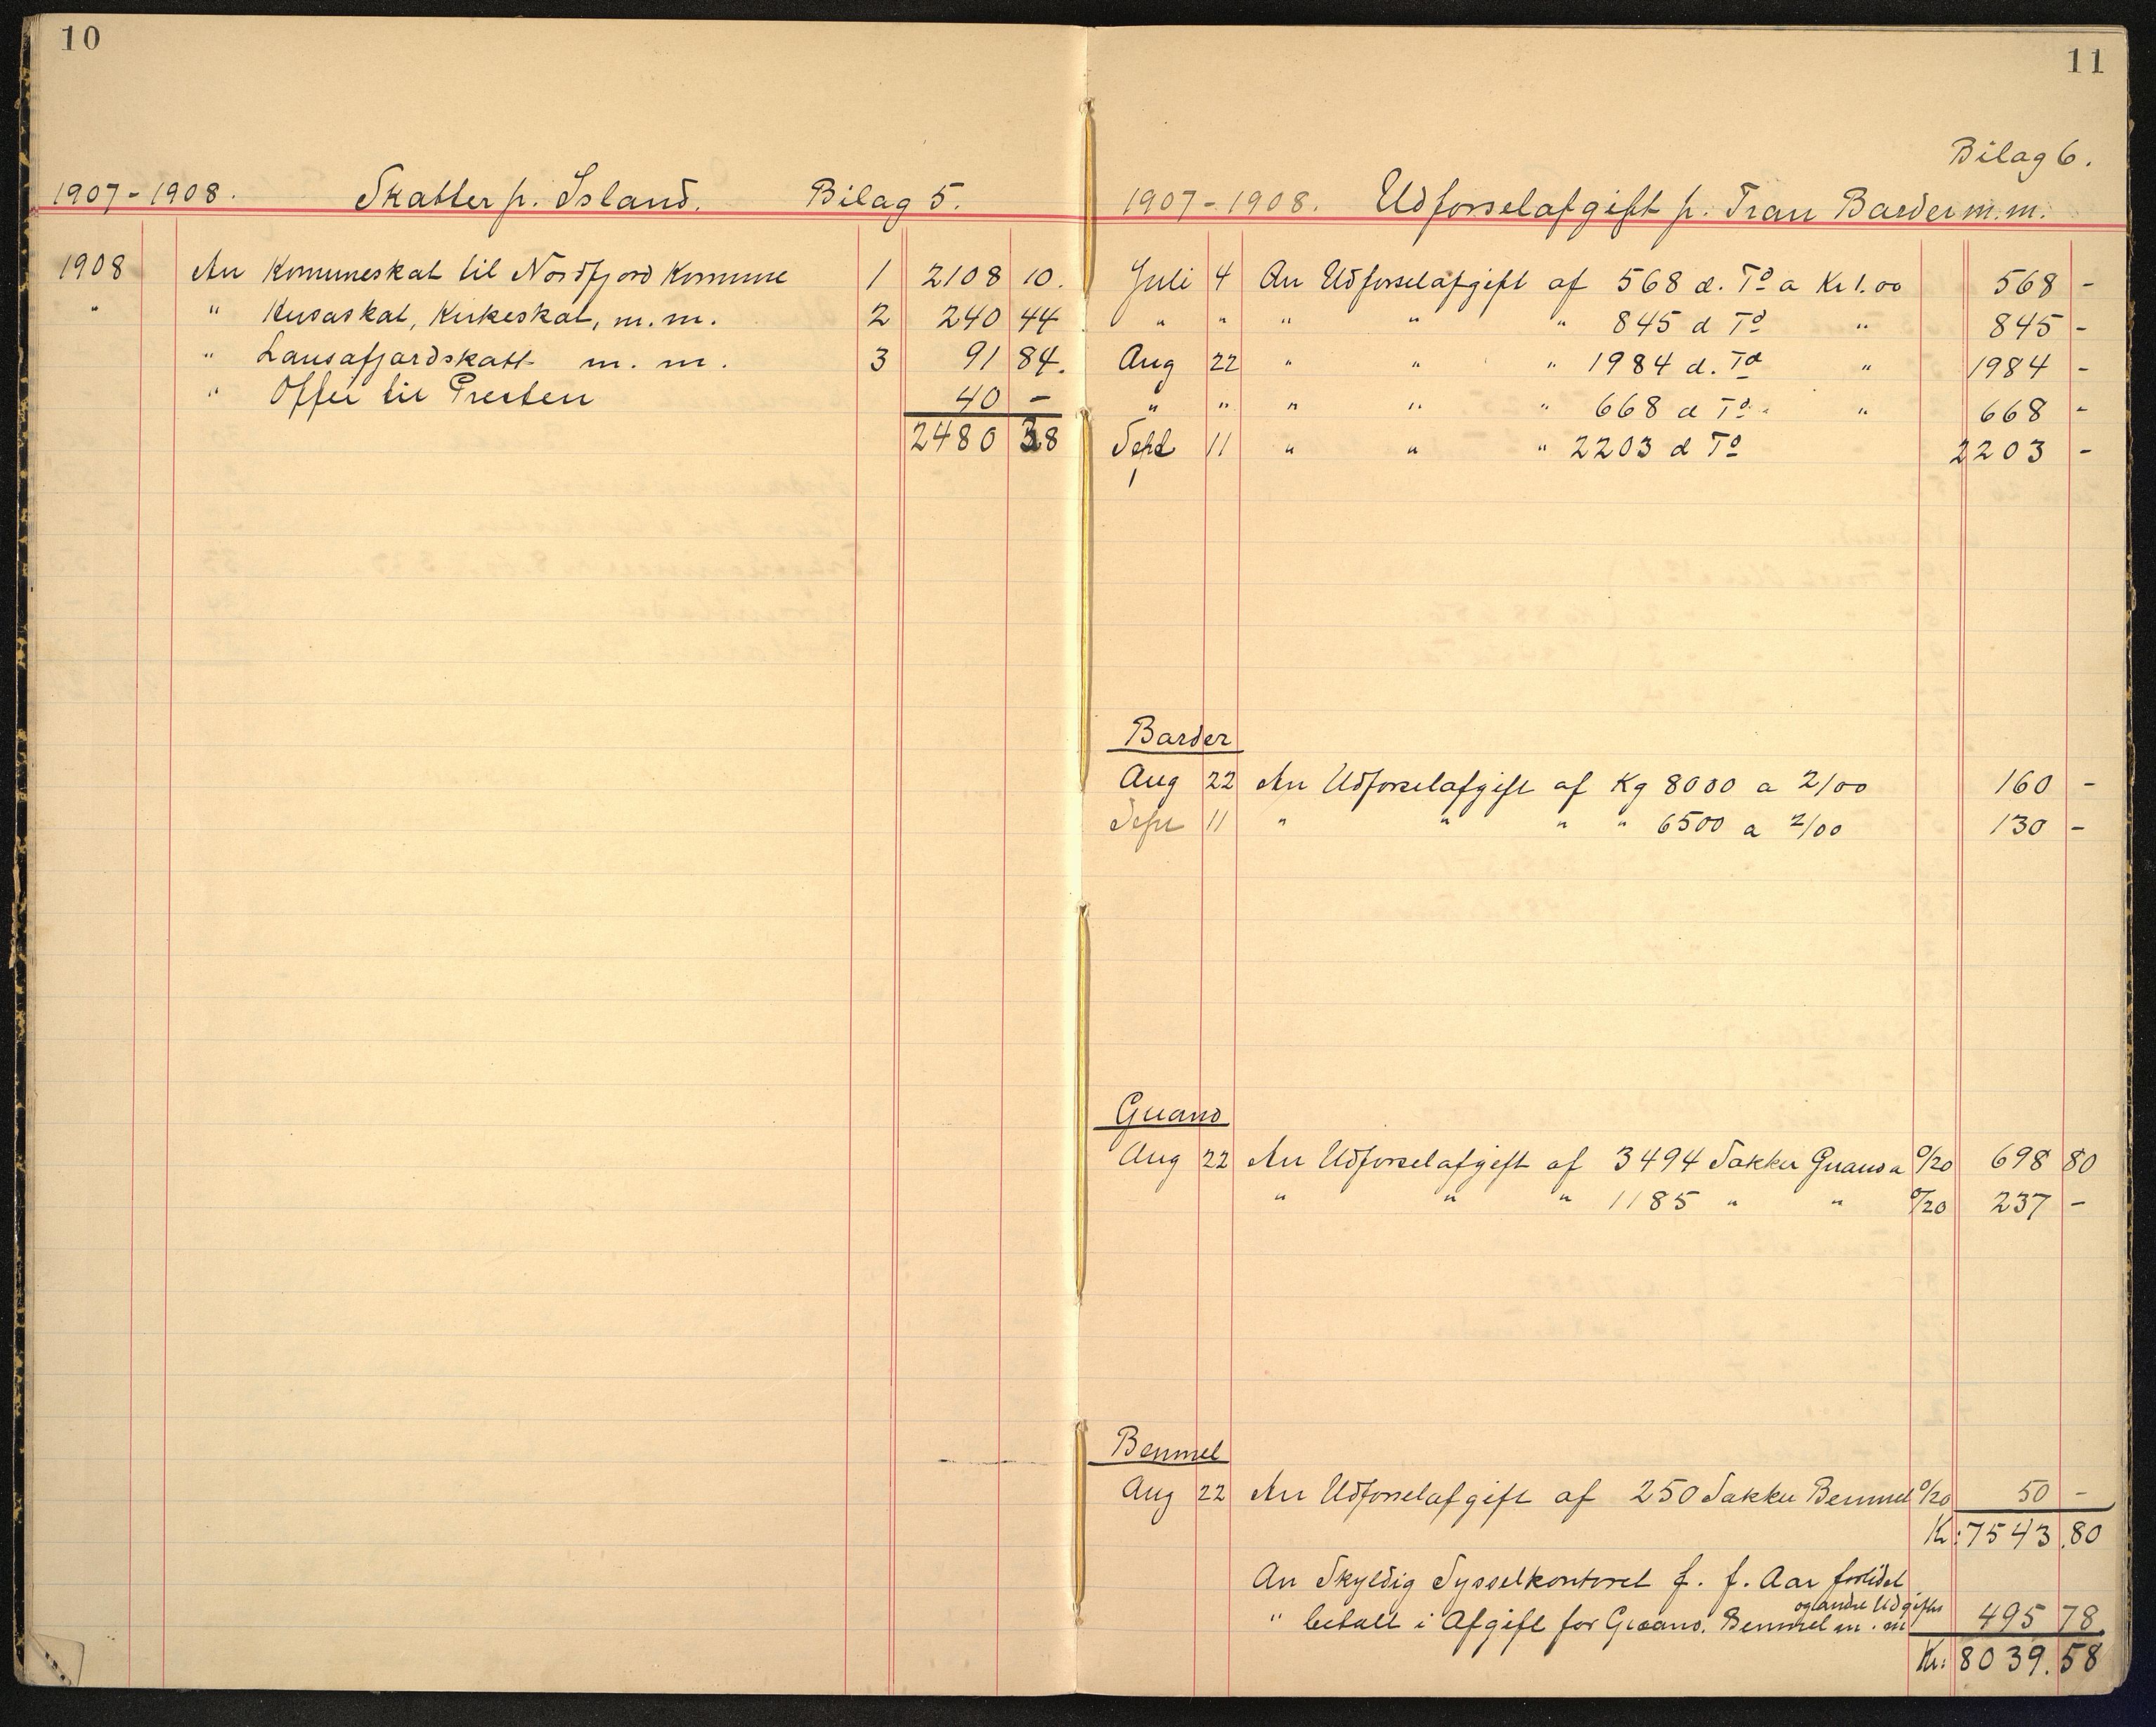 10
1907-1908. Skatter p. Island. Bilag 5.
1908 An Kommuneskat til Nordfjord Komune 1 2108 10.
" " Husaskat, Kirkeskat, m.m. 2 240 44
" Lausafjardskatt m.m. 3 91 84.
" Offer til Presten 40 -
2480 38
11
Bilag 6.
1907-1908. Udførselafgift p. Tran Barder m.m.
Juli 4 An Udførselafgift af 568 d. To a Kr 1.00 568 -
" " " " " 845 d To " 845 -
Aug 22 " " " 1984 d. To " 1984 -
" " " " " 668 d To " 668 -
Sept 11 " " " 2203 d To 2203 -
Barder
Aug 22 An Udførselafgift af Kg 8000 a 2/00 160 -
Sept 11 " " " " 6500 a 2/00 130 -
Guano
Aug 22 An Udførselafgift af 3494 Sækker Guano a 0/20 698 80
" " " 1185 " " 0/20 237 -
Benmel
Aug 22 An Udførselafgift af 250 Sækker Benmel 0/20 50 -
Kr: 7543.80
An Skyldig Sysselkontoret f. f. Aar
og andre Udgifter
" betalt i Afgift for Guano, Benmel m.m 495 78.
Kr: 8039.58